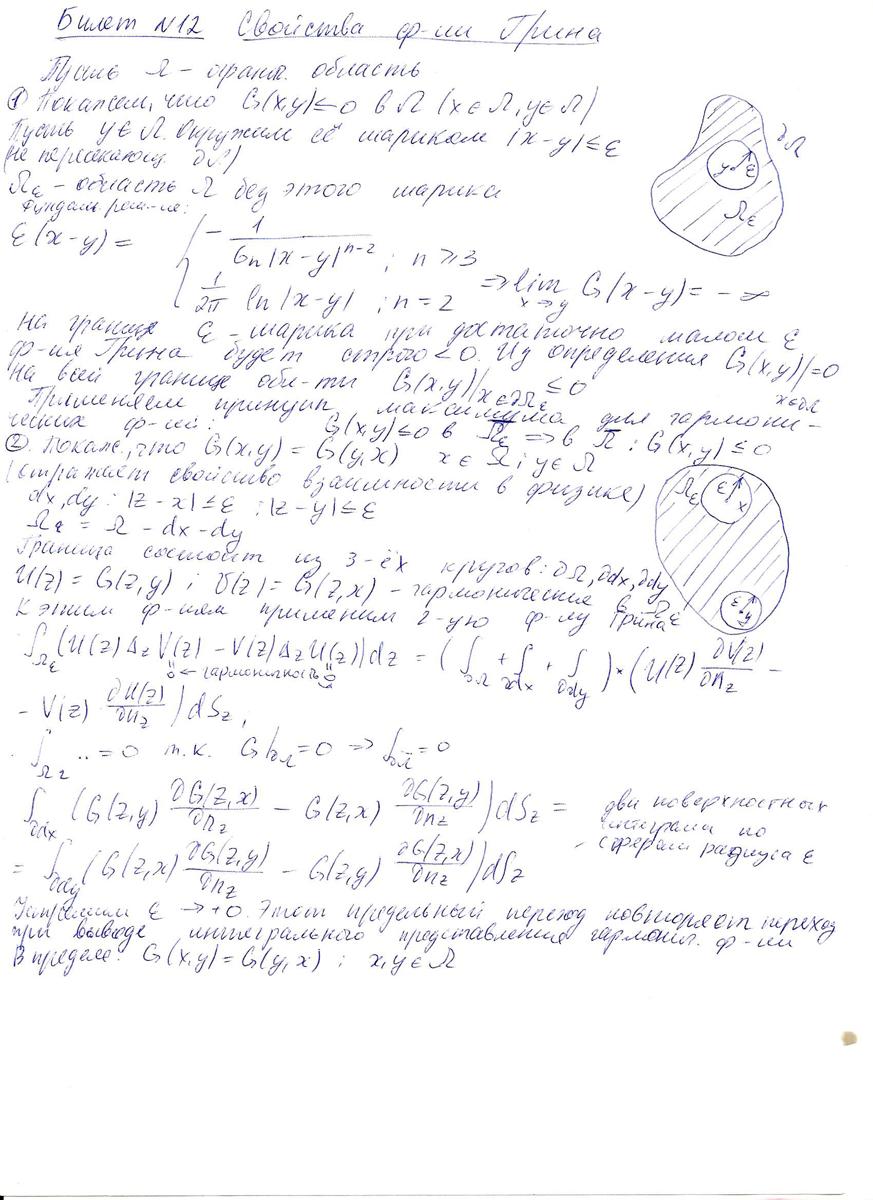 Билет №12 Свойства ф-ии Грина
Пусть Ω - огранич. область
① Покажем, что G(x,y)≤0 в Ω (x∈Ω, y∈Ω)
Пусть y∈Ω. Окружим её шариком |x-y|≤ε
(не пересекающ. ∂Ω)
Ω_ε - область Ω без этого шарика
Фундам. реш-ие:
ε(x-y) = { - 1/(σ_n|x-y|^{n-2}) ; n≥3
1/2π ln|x-y| ; n=2 ⇒ lim_{x→y} G(x-y) = -∞
на границе ε-шарика при достаточно малом ε
ф-ия Грина будет строго <0. Из определения G(x,y)|_{x∈∂Ω}=0
На всей границе обл-ти G(x,y)|_{x∈∂Ω_ε} ≤ 0
Применяем принцип максимума для гармони-
ческих ф-ий: G(x,y)≤0 в Ω_ε ⇒ в Ω : G(x,y)≤0
②. Покаж., что G(x,y) = G(y,x) x∈Ω; y∈Ω
(отражает свойство взаимности в физике)
dx, dy : |z-x|≤ε ; |z-y|≤ε
Ω_ε = Ω - dx - dy
Граница состоит из 3-ёх кругов: ∂Ω, ∂dx, ∂dy
U(z) = G(z,y) ; V(z) = G(z,x) - гармонические в Ω_ε
К этим ф-иям применим 2-ую ф-лу Грина
∫_{Ω_ε} (U(z)Δ_z V(z) - V(z)Δ_z U(z))dz = (∫_{∂Ω} + ∫_{∂dx} + ∫_{∂dy}) × (U(z) ∂V(z)/∂n_z -
0 ← гармоничность 0
- V(z) ∂U(z)/∂n_z) dS_z ;
∫_{Ω_ε} .. = 0 т.к. G|_{∂Ω}=0 ⇒ ∫_{∂Ω}=0
∫_{∂dx} (G(z,y) ∂G(z,x)/∂n_z - G(z,x) ∂G(z,y)/∂n_z) dS_z =
= ∫_{∂dy} (G(z,x) ∂G(z,y)/∂n_z - G(z,y) ∂G(z,x)/∂n_z) dS_z
два поверхностных
интеграла по
сферам радиуса ε
Устремим ε → +0. Этот предельный переход повторяет переход
при выводе интегрального представления гармонич. ф-ии
В пределе: G(x,y) = G(y,x) ; x,y∈Ω
∂Ω
y
ε
Ω_ε
Ω_ε
ε
x
ε
y